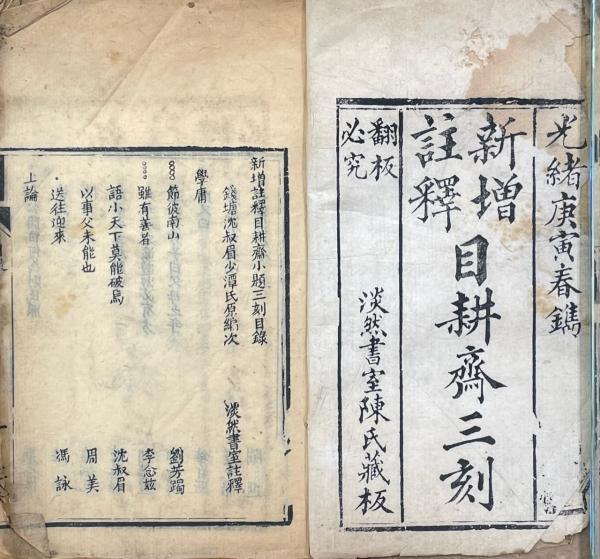 光緒庚寅春鐫
新增
註釋
目耕齋三刻
翻板
必究
淡然書室陳氏藏板
新增註釋目耕齋小題三刻目錄
錢塘沈叔眉少潭氏原編次
淡然書室註釋
學庸
節彼南山
劉芳躅
雖有善者
李念兹
語小天下莫能破焉
沈叔眉
以事父未能也
周美
送往迎來
馮詠
上論